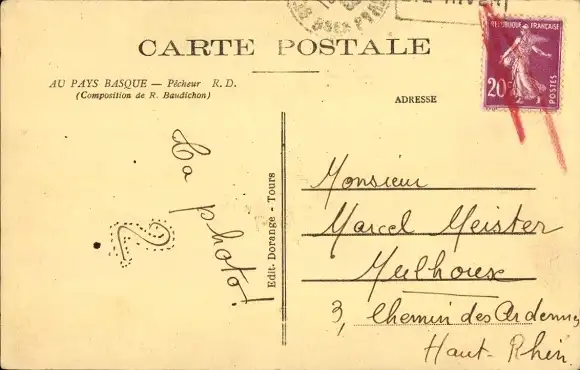 CARTE POSTALE
AU PAYS BASQUE — Pêcheur R. D.
(Composition de R. Baudichon)
ADRESSE
REPUBLIQUE FRANÇAISE
20c
POSTES
La photo!
Edit. Dorange - Tours
Monsieur
Marcel Meister
Mulhouse
3, Chemin des Ardennes
Haut-Rhin